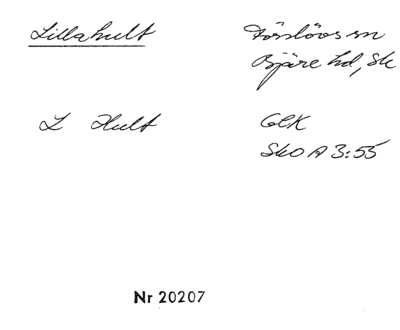 Lillahult
Förslövs sn
Bjäre hd, Sk
L Hult
GEK
SkO A 3:55
Nr 20207